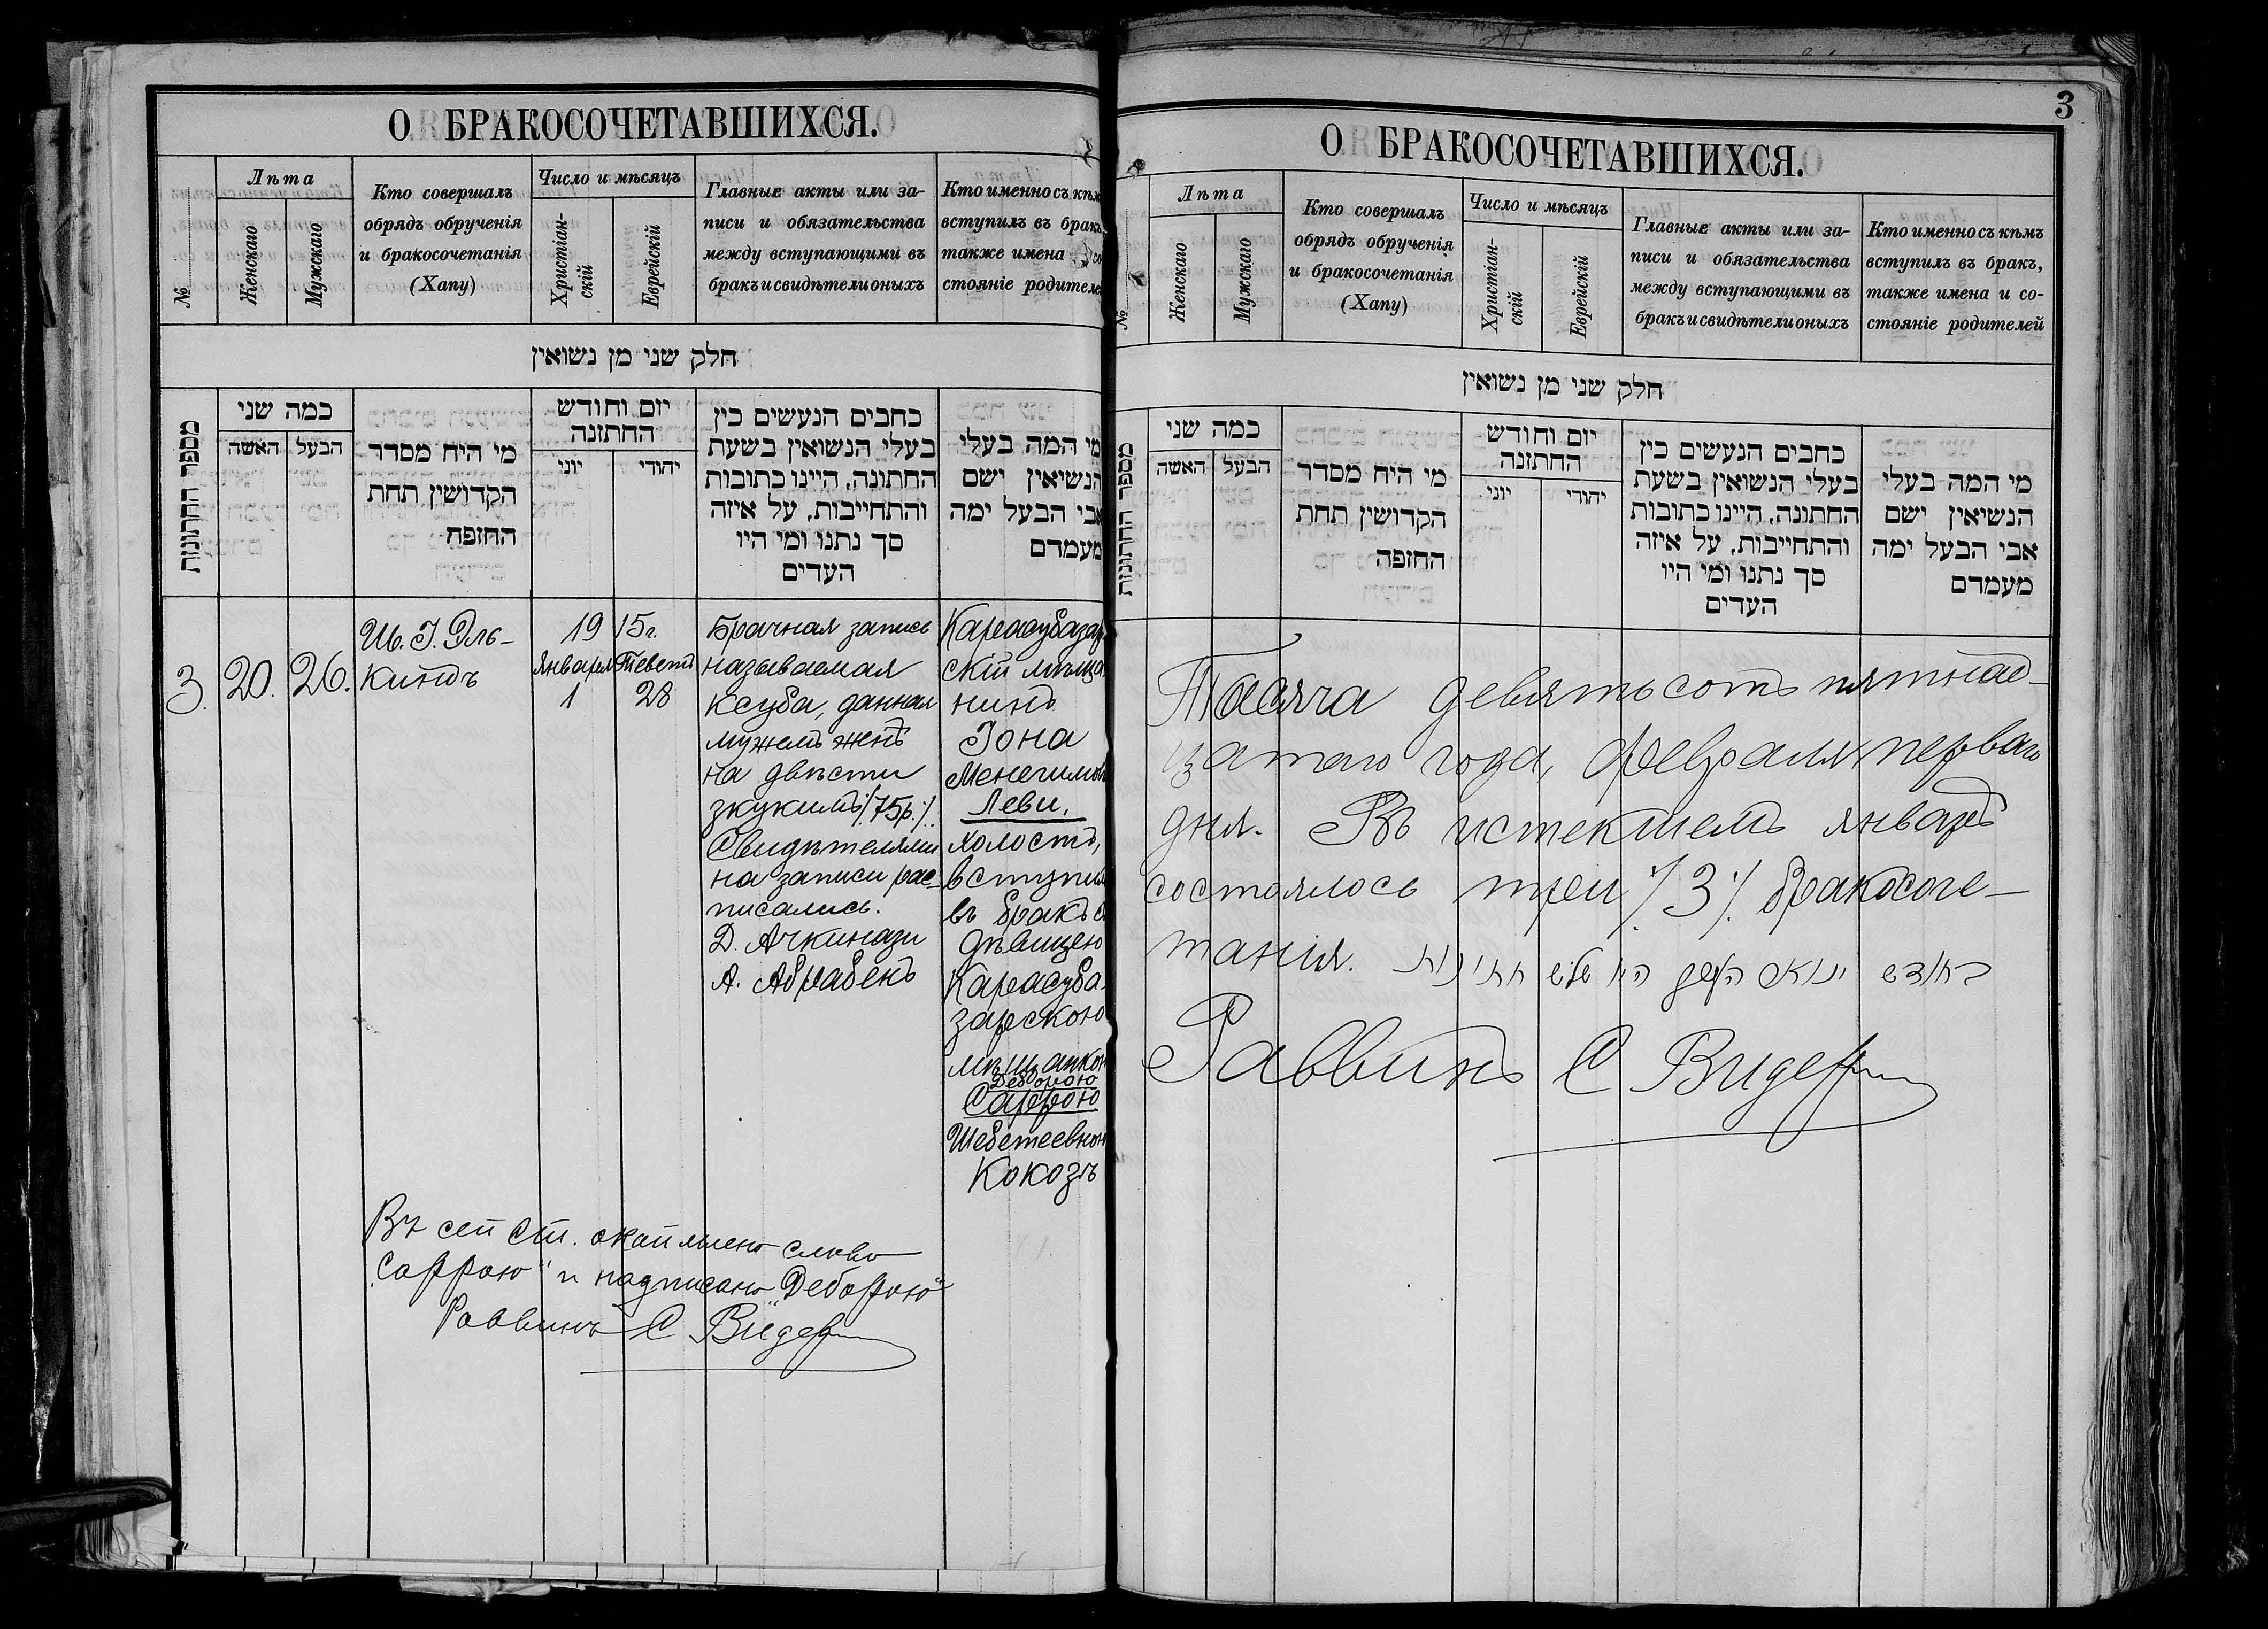 О БРАКОСОЧЕТАВШИХСЯ.
№
Лѣта
Женскаго
Мужскаго
Кто совершалъ
обрядъ обрученія
и бракосочетанія
(Хапу)
Число и мѣсяцъ
Христіан-
скій
Еврейскій
Главные акты или за-
писи и обязательства
между вступающими въ
бракъ и свидѣтели оныхъ
Кто именно съ кѣмъ
вступилъ въ бракъ,
также имена
стояніе родителей
חלק שני מן נשואין
מספר החתונות
כמה שני
האשה
הבעל
מי היח מסדר
הקדושין תחת
החופה
יום וחודש
החתזנה
יוני
יהודי
כחבים הנעשים כין
בעלי הנשואין בשעת
החתונה, היינו כתובות
והתחייבות, על איזה
סך נתנו ומי היו
העדים
מי המה בעלי
הנשיאין ישם
אבי הבעל ימה
מעמדם
3.
20.
26.
Ш. І. Эль-
киндъ
19 15г.
Января
1
Тевета
28
Брачная запись
называемая
ксуба, данная
мужемъ женѣ
на двѣсти
зкукимъ /75р./.
Свидѣтелями
на записи рас-
писались.
Д. Ачкинази
А. Абрабенъ
Карасубазар
скій мѣща
нинъ
Іона
Менечимов
Леви.
холостъ,
вступил
въ бракъ с
дѣвицею
Карасуба-
зарскою
мѣщанкою
Деборою
Саррою
Шебетеевною
Кокозъ
Въ сей ст. окаймлено слово
„Саррою" и надписано „Деборою"
Раввинъ С Видер
3
О БРАКОСОЧЕТАВШИХСЯ.
№
Лѣта
Женскаго
Мужскаго
Кто совершалъ
обрядъ обрученія
и бракосочетанія
(Хапу)
Число и мѣсяцъ
Христіан-
скій
Еврейскій
Главные акты или за-
писи и обязательства
между вступающими въ
бракъ и свидѣтели оныхъ
Кто именно съ кѣмъ
вступилъ въ бракъ,
также имена и со-
стояніе родителей
חלק שני מן נשואין
מספר החתונות
כמה שני
האשה
הבעל
מי היח מסדר
הקדושין תחת
החזפה
יום וחודש
החתזנה
יוני
יהודי
כחבים הנעשים כין
בעלי הנשואין בשעת
החתונה, היינו כתובות
והתחייבות, על איזה
סך נתנו ומי היו
העדים
מי המה בעלי
הנשיאין ישם
אבי הבעל ימה
מעמדם
Тысяча девятьсотъ пятнад-
цатаго года, февраля перваго
дня. Въ истекшемъ январѣ
состоялось три /.3/. бракосоче-
танія. בחודש ינואר העבר היו שלש חתונות
Раввинъ С Видер